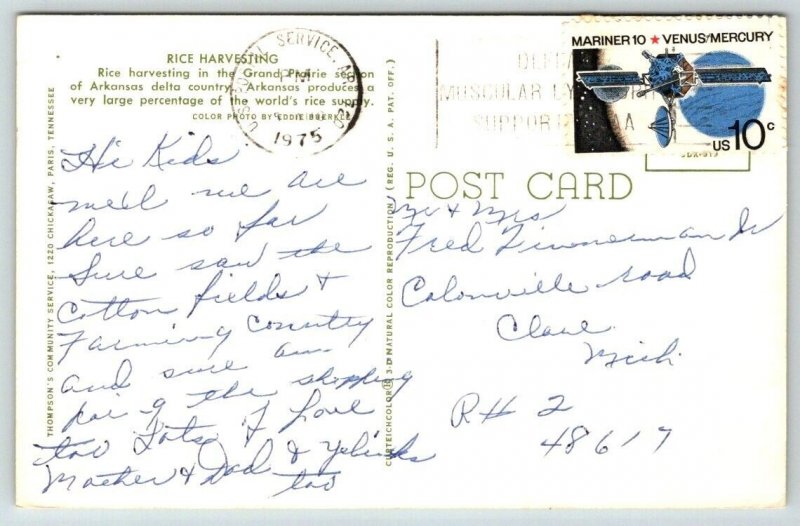 RICE HARVESTING
Rice harvesting in the Grand Prairie section
of Arkansas delta country. Arkansas produces a
very large percentage of the world's rice supply.
COLOR PHOTO BY EDDIE
THOMPSON'S COMMUNITY SERVICE, 1220 CHICKASAW, PARIS, TENNESSEE
Hi Kids
well we are
here so far
Sure saw the
Cotton fields &
Farming Country
and sure am
the shopping
too Lots of Love
Mother & Dad &
too
CURTEICHCOLOR® 3-D NATURAL COLOR REPRODUCTION (REG. U.S.A. PAT. OFF.)
U.S. POSTAL SERVICE, AR
PM
1975
MUSCULAR
SUPPORT
MARINER 10 ★ VENUS/MERCURY
US 10c
POST CARD
Mr & Mrs
Fred Zimmerman Jr
Colonville road
Clare
Mich
R# 2
48617